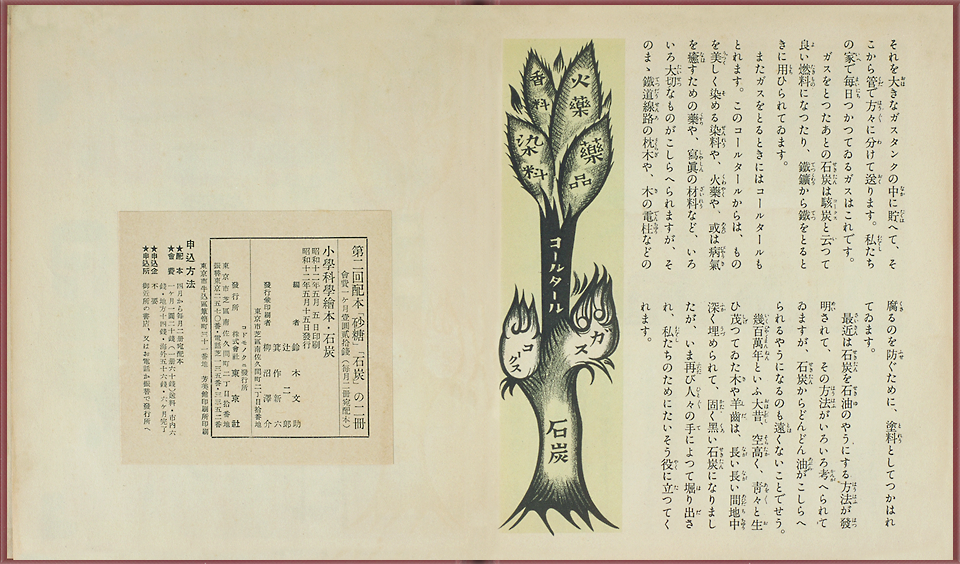 それを大きなガスタンクの中に貯へて、そ
こから管で方々に分けて送ります。私たち
の家で毎日つかつてゐるガスはこれです。
ガスをとつたあとの石炭は骸炭と云つて
良い燃料になつたり、鐵鑛から鐵をとると
きに用ひられてゐます。
またガスをとるときにはコールタールも
とれます。このコールタールからは、もの
を美しく染める染料や、火藥や、或は病氣
を癒すための藥や、寫眞の材料など、いろ
いろ大切なものがこしらへられますが、そ
のまゝ鐵道線路の枕木や、木の電柱などの
腐るのを防ぐために、塗料としてつかはれ
てゐます。
最近は石炭を石油のやうにする方法が發
明されて、その方法がいろいろ考へられて
ゐますが、石炭からどんどん油がこしらへ
られるやうになるのも遠くないことでせう。
幾百萬年といふ大昔、空高く、靑々と生
ひ茂つてゐた木や羊齒は、長い長い間地中
深く埋められて、固く黑い石炭になりまし
たが、いま再び人々の手によつて堀り出さ
れ、私たちのためにたいそう役に立つてく
れます。
火藥
香料
藥品
染料
コールタール
ガス
コークス
石炭
第二回配本「砂糖」「石炭」の二冊
會費一ケ月壹圓貳拾錢(每月二冊宛配本)
小學科學繪本・石炭
昭和十二年五月五日印刷
昭和十二年五月十五日發行
編者 鈴木文助
辻二郎
箕作新六
發行兼印刷者 柳沼澤介
東京市芝區南佐久間町二丁目拾番地
コドモノクニ發行所
發行所 株式會社 東京社
東京市芝區南佐久間町二丁目拾番地
東京市牛込區 三十一番地 芳美館印刷所印刷
申込方法
★配本 四月から每月二冊宛配本
★會費 一ケ月一圓二十錢(一冊六十錢)送料・市内六
錢・地方十四錢・海外五十六錢・六ケ月完了
★申込金 不要
★申込所 御近所の書店、又はお電話か振替で發行所へ